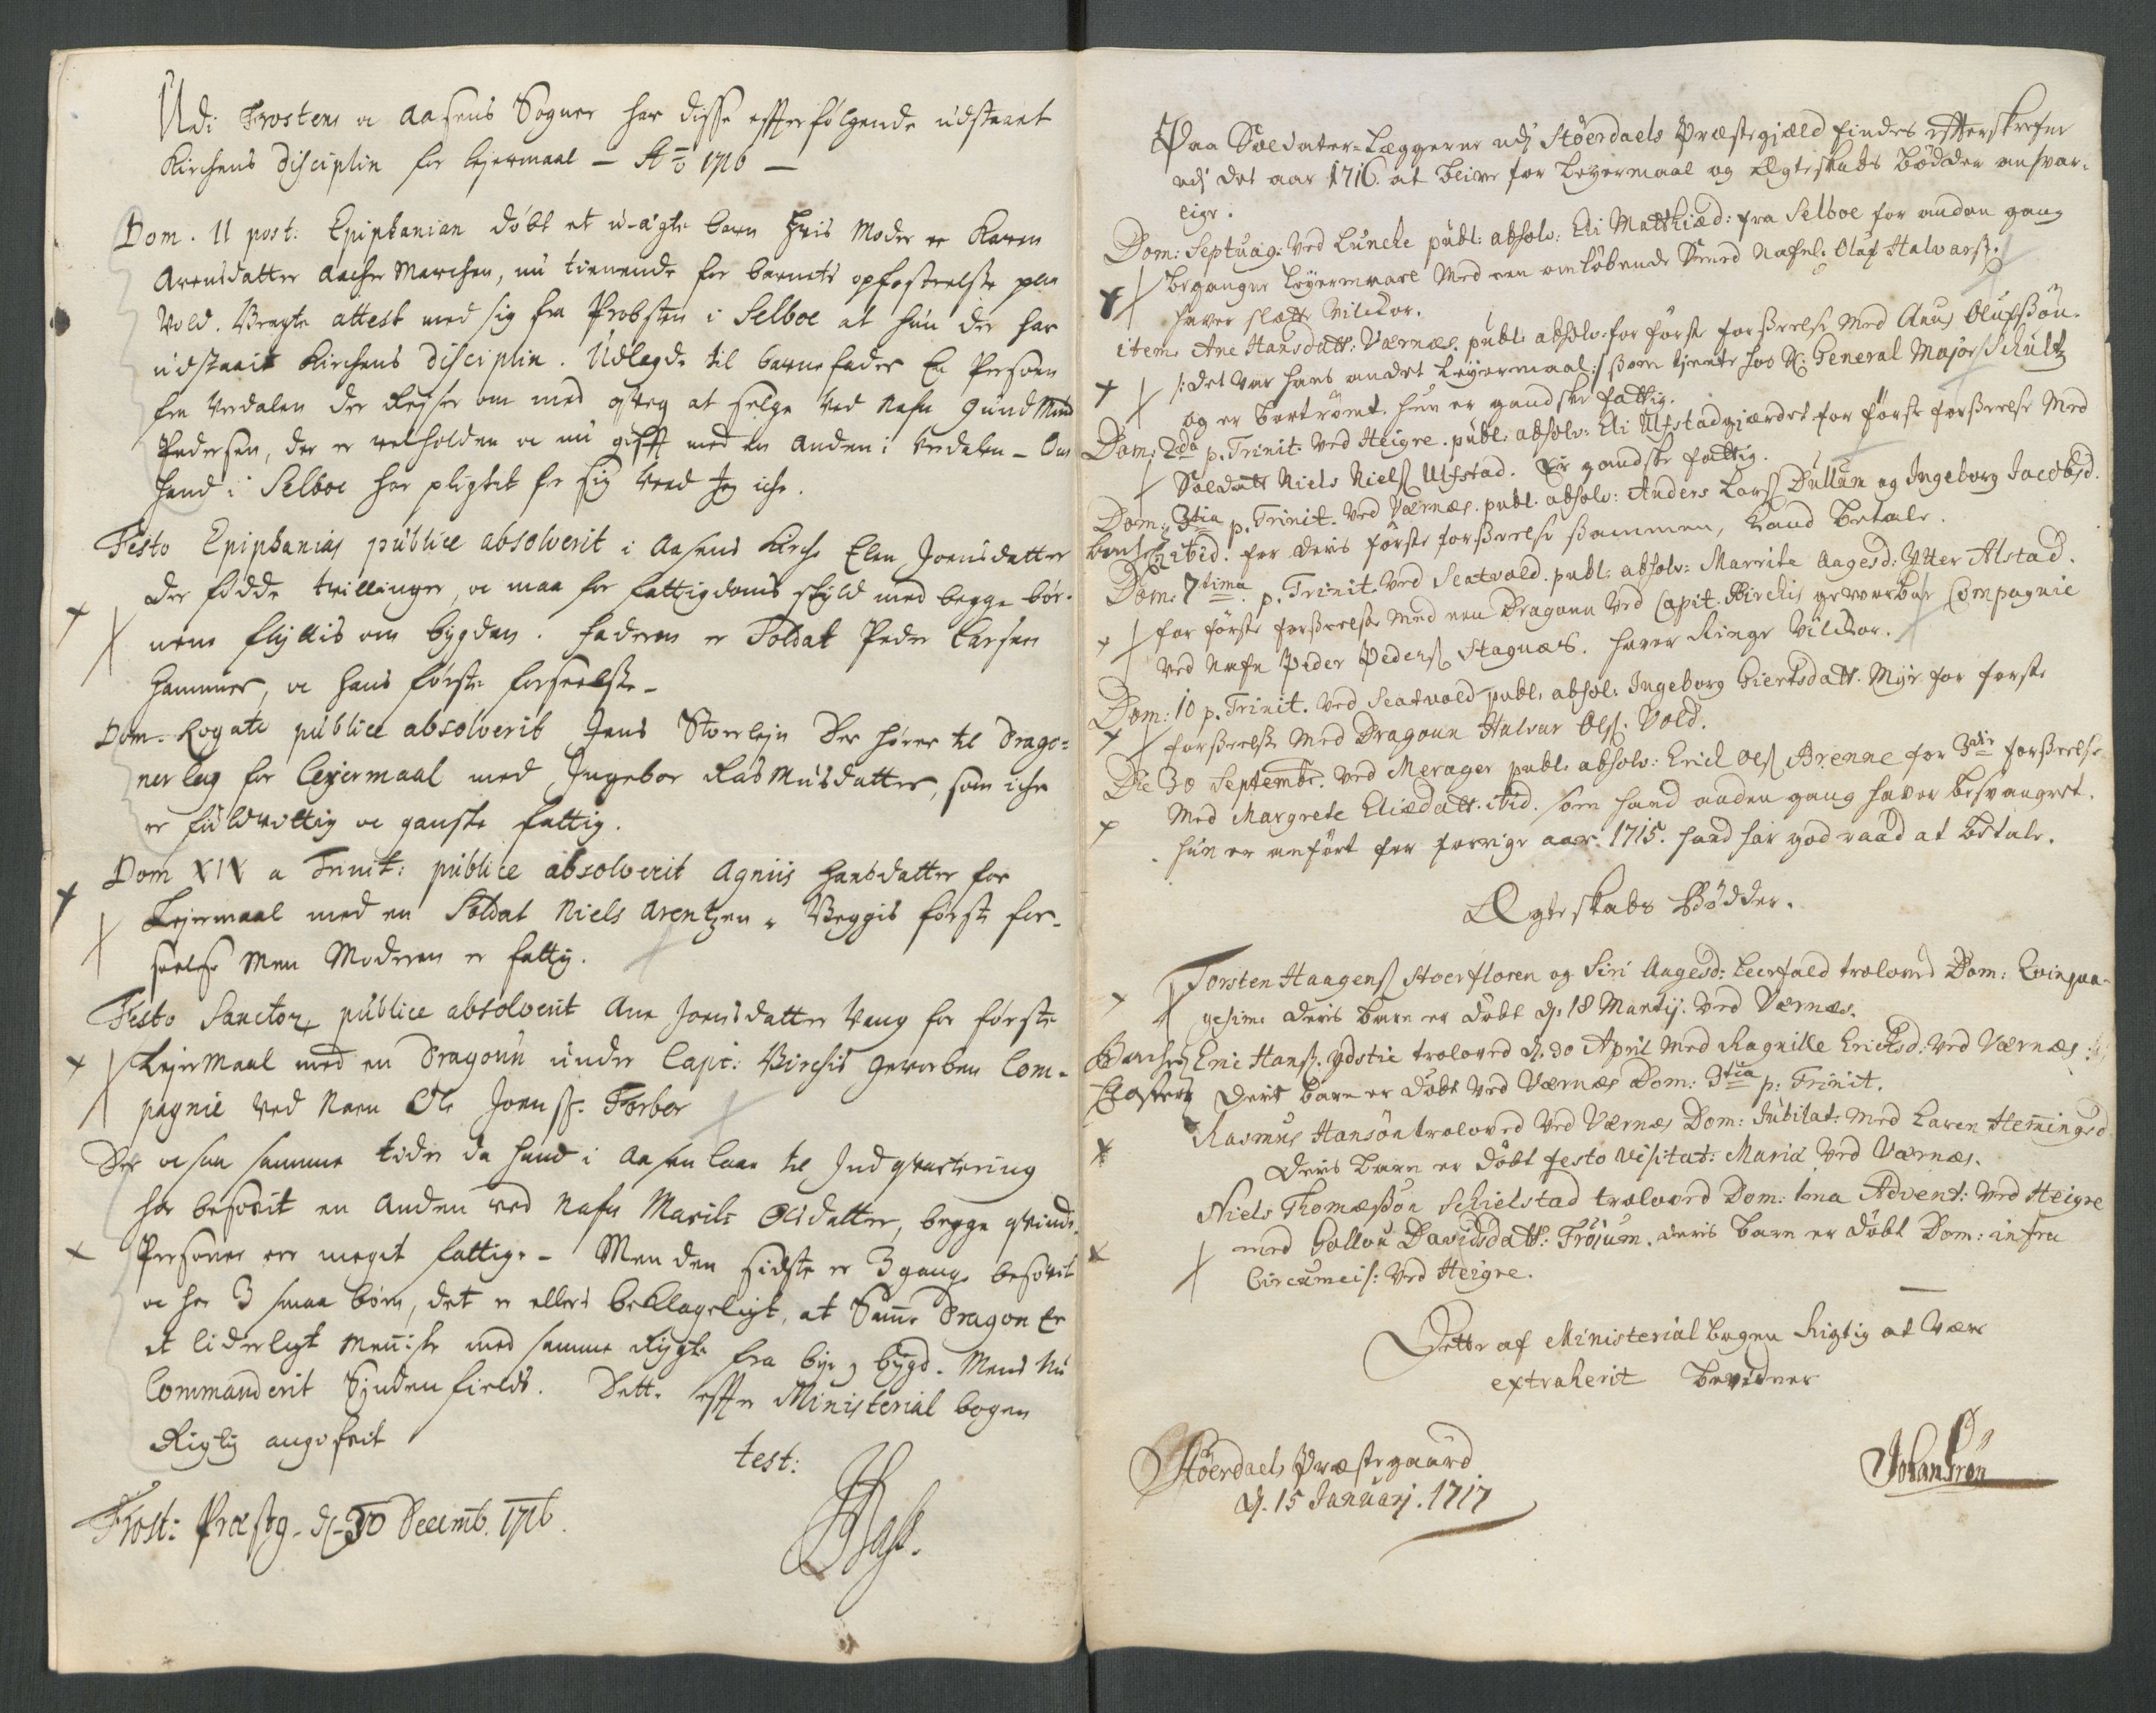 Udi Frostens oc Aasens Sogner har disse efterfølgende udstaaet
Kirchens disciplin for lejermaal — Ao 1716 —
Dom. II post: Epiphanian døbt et u-ægte barn hvis Moder er Karen
Arensdatter Aachre Marchen, nu tienende for barnets opfostrelse paa
Vold. Bragte attest med sig fra Probsten i Selboe at hun der har
udstaait Kirchens disciplin. Udlagde til barnefader En Person
fra Verdalen der Rejser om med qveg at selge ved nafn Gundmund
Pedersen, der er velholden oc nu gifft med en anden i Verdalen — Om
hand i Selboe har pligtet for sig veed Jeg iche.
Festo Epiphanias publice absolverit i Aasens Kirche Elen Joensdatter
der fødde tvillinger, oc maa for fattigdoms skyld med begge bør-
nene flyttis om bygden. Faderen er Soldat Peder Larsen
Hammer, oc hans første forseelse —
Dom. Rogate publice absolverit Jens Storlejn der hører til Drago-
nerlag for lejermaal med Ingebor Rasmusdatter, som iche
er fuldvittig oc ganske fattig.
Dom XIX a Trinit: publice absolverit Agniis Hansdatter for
Lejermaal med en Soldat Niels Arentzen. Beggis første for-
seelse Men Moderen er fattig.
Festo Sanctor publice absolverit Ane Joensdatter Vang for første
Lejermaal med en Dragoun under Capit: Birchis Geworben Com-
pagnie ved Navn Ole Joenss: Forbor
Der oc saa samme tider da hand i Aasen laae til Indqvartering
har besovit en anden ved nafn Marite Olsdatter, begge qvinde
Personer ere meget fattige — Men den sidste er 3 gange besovit
oc har 3 smaa børn, det er ellers beklageligt, at Samme Dragon Er
et liderligt Menniske med samme Rygte fra bye og bygd. Mens nu
Commanderit Syndenfields. Dette efter Ministerial bogen
Rigtig angifvit
test:
Frost: Præstg. d. 30 Decemb. 1716.
Paa Soldater-Læggerne udj Stördaels Præstegjæld findes efterskrefne
udj det aar 1716. at blive for Leyermaal og Ægteskabs Bödder ansvar-
lige.
Dom: Septuag: ved Lunche publ: absolv: Eli Matthiæd: fra Selboe for anden gang
begangne Leyermaal Med een omlöbende Smed Nafnl: Oluf Halvarss.
haver slette Vilckor.
item Ane Hansdatt: Værnæs. publ: absolv. for förste forseelse Med Anus Olufssön.
/: det var hans andet Leyermaal :/ som tjente hos H: General Major Schultz
og er bortrömt. hun er gandske fattig.
Dom: 2da p. Trinit. ved Heigre. publ: absolv: Eli Ulfstadgjærdet for förste forseelse Med
Soldatt Niels Nielss Ulfstad. Er gandske fattig.
Dom: 3tia p. Trinit. ved Værnæs. publ. absolv: Anders Larss Dullum og Ingeborg Jacobsd.
ibid. for deris förste forseelse sammen, kand betale.
Dom: 7tima p. Trinit. ved Scatvold. publ: absolv: Marrite Aagesd: Ytter Alstad.
for förste forseelse med een Dragoun ved Capit: Birchis gevorbne Compagnie
ved nafn Peder Pederss Stagnæs. haver Ringe Vilckor.
Dom: 10 p. Trinit. ved Scatvold publ: absol: Ingeborg Giertsdatt. Myr for förste
forseelse Med Dragoun Halvar Olss: Vold.
Die 30 Septembr. ved Merager publ. absolv: Erich Olss Brenne for 3die forseelse
Med Margrete Eliædatt. ibid. som hand anden gang haver besvangret.
hun er anfört for forrige aar. 1715. hand har god raad at betale.
Ægteskabs Bödder.
Torsten Haagenss Stoerfloren og Siri Aagesd: Leerfald troloved Dom: Qvinqua-
gesim: deris barn er döbt d. 18 Martij. ved Værnæs.
Eric Hanss. Ydstie troloved d. 30 April Med Ragnille Erichsd: ved Værnæs
deris barn er döbt ved Værnæs Dom: 3tia p: Trinit.
Rasmus Hansön troloved ved Værnæs Dom: Jubilat: med Karen Hemingsd
deris barn er döbt festo visitat: Mariæ ved Værnæs.
Niels Thomæssön Schielstad troloved Dom: 1ma Advent: ved Heigre
med Gollou Davidsdatt: Tröium. deris barn er döbt Dom: infra
Circumcis: ved Heigre.
Dette af Ministerial bogen Rigtig at være
extraherit bevidner
Stördaels Præstegaard
d. 15 Januarj. 1717
Johan Frön